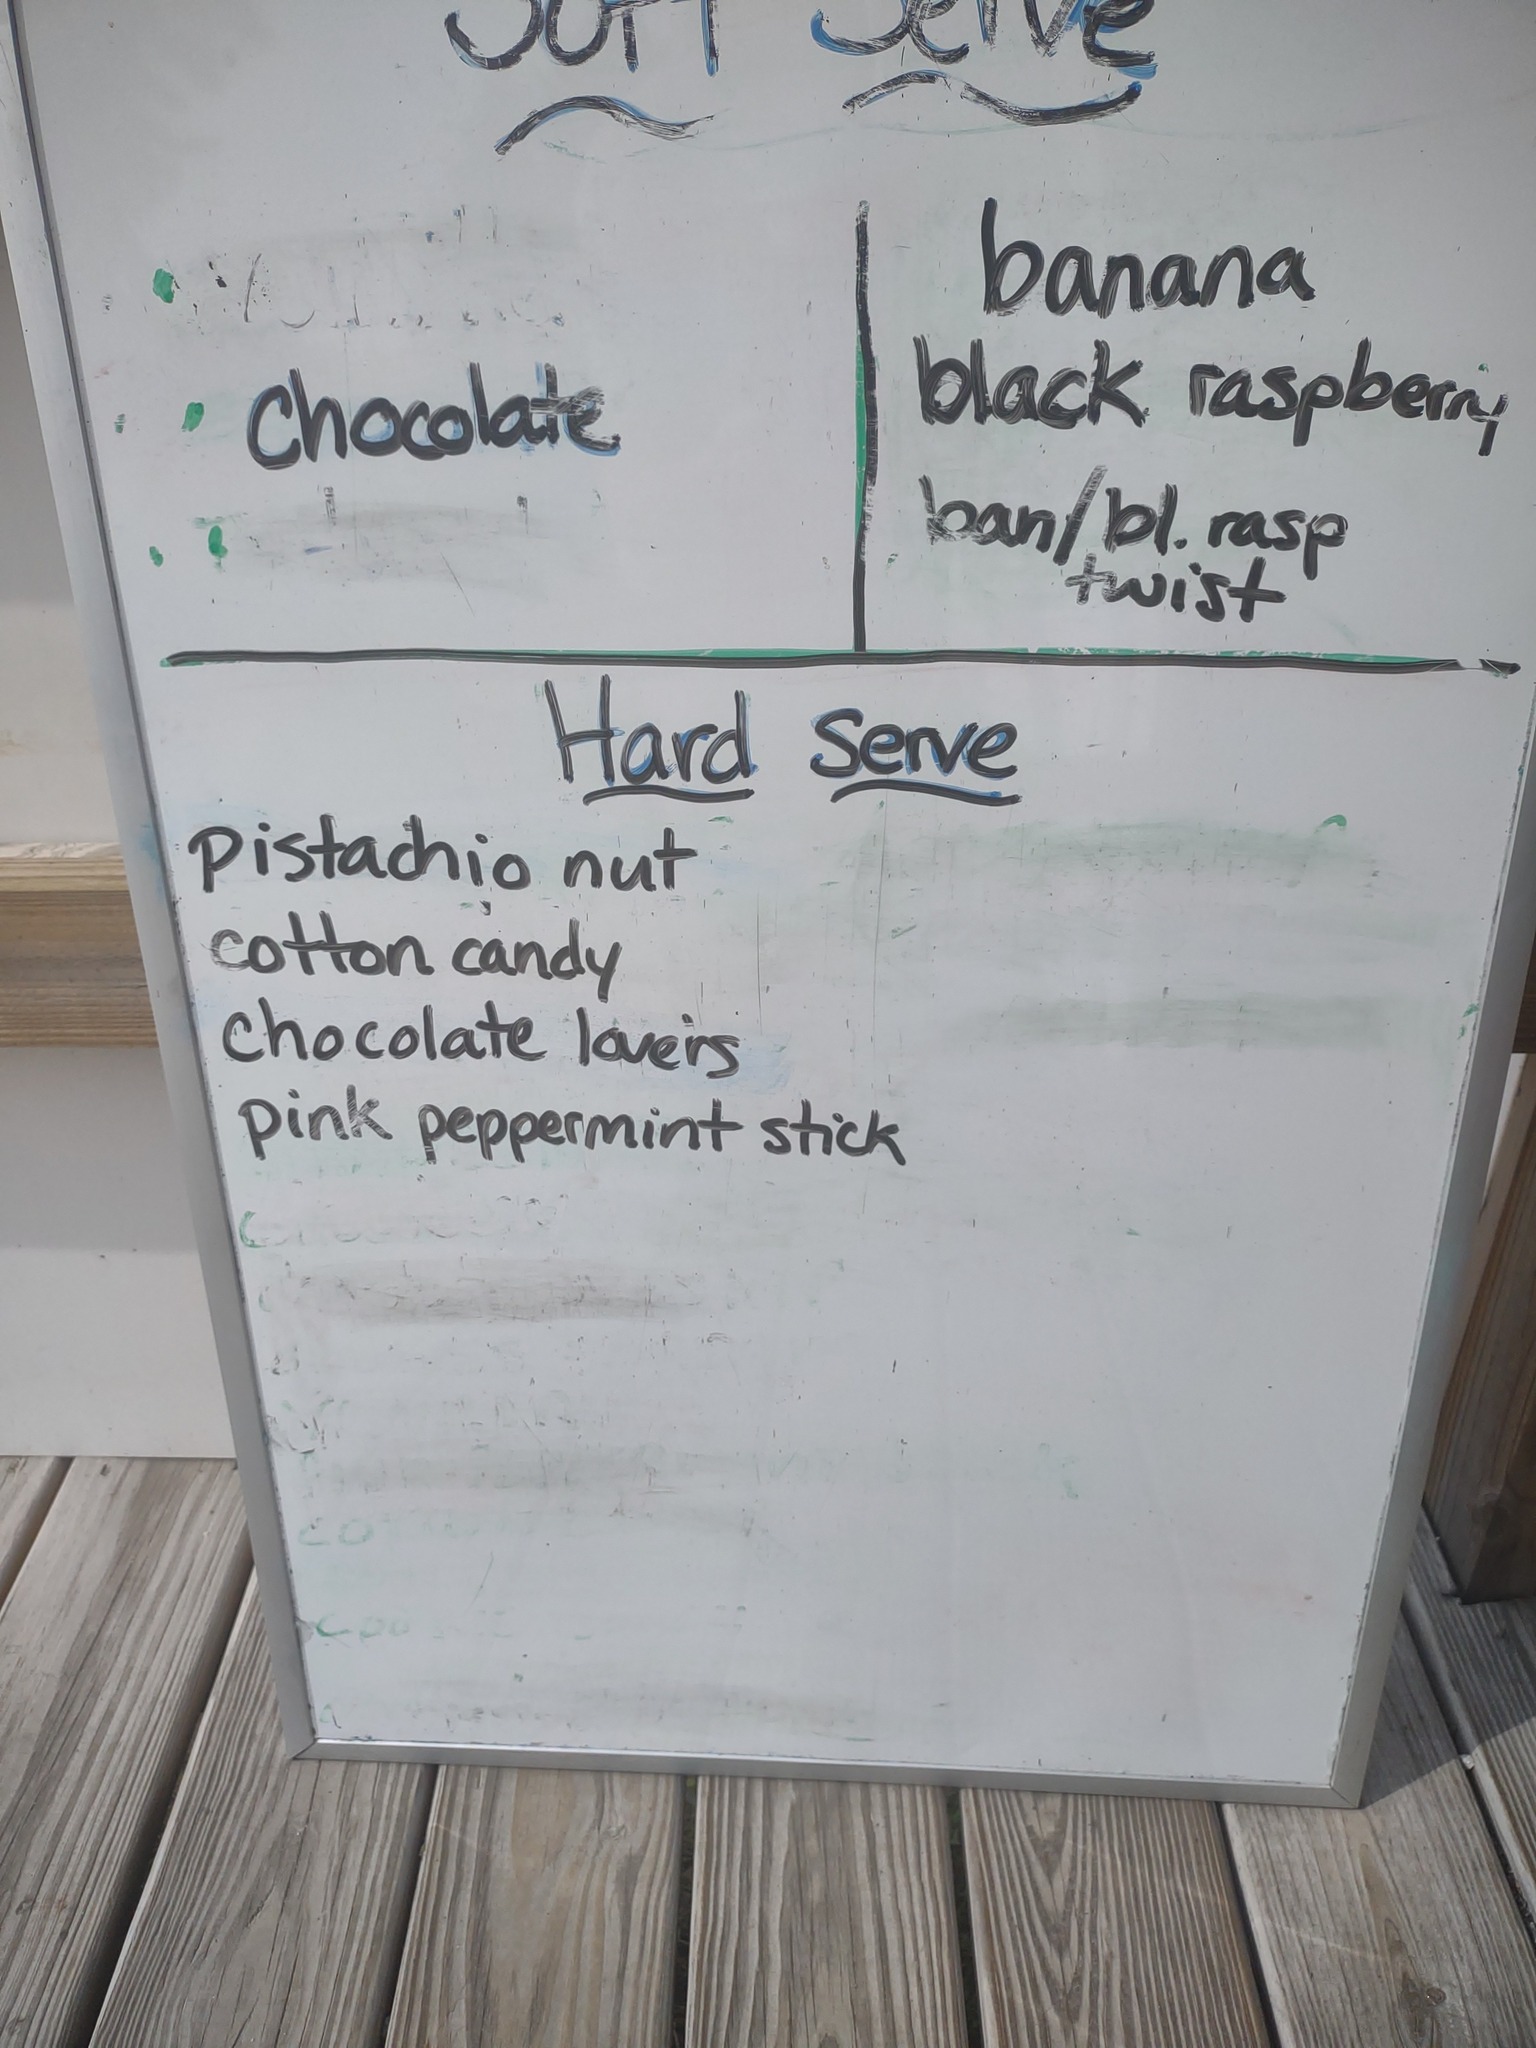 Soft Serve
Chocolate
banana
black raspberry
ban/bl. rasp
twist
Hard Serve
Pistachio nut
cotton candy
chocolate lovers
pink peppermint stick